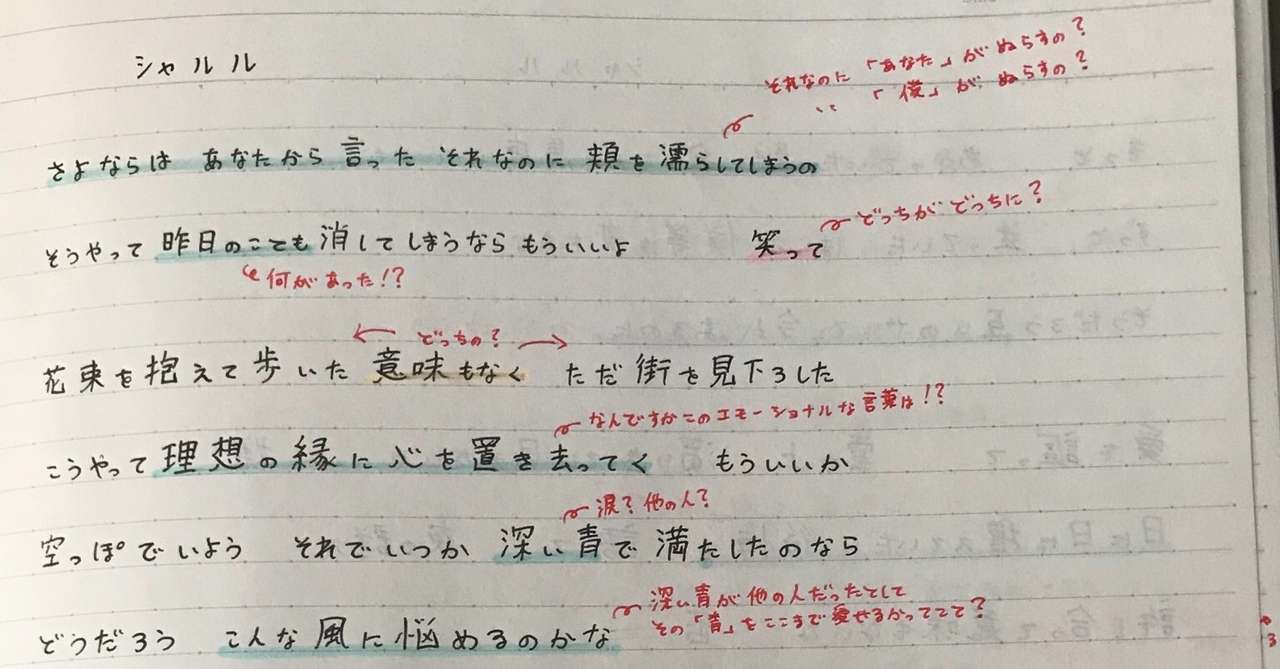 シャルル
それなのに「あなた」がぬらすの?
〃「僕」がぬらすの?
さよならは あなたから 言った それなのに 頬を濡らしてしまうの
どっちがどっちに?
そうやって 昨日のことも 消してしまうなら もういいよ 笑って
何があった!?
どっちの?
花束を抱えて歩いた 意味もなく ただ 街を見下ろした
なんですかこのエモーショナルな言葉は!?
こうやって 理想の縁に 心を置き去ってく もういいか
涙?他の人?
空っぽでいよう それでいつか 深い青で 満たしたのなら
深い青が他の人だったとして
その「青」をここまで愛せるかってこと?
どうだろう こんな風に悩めるのかな